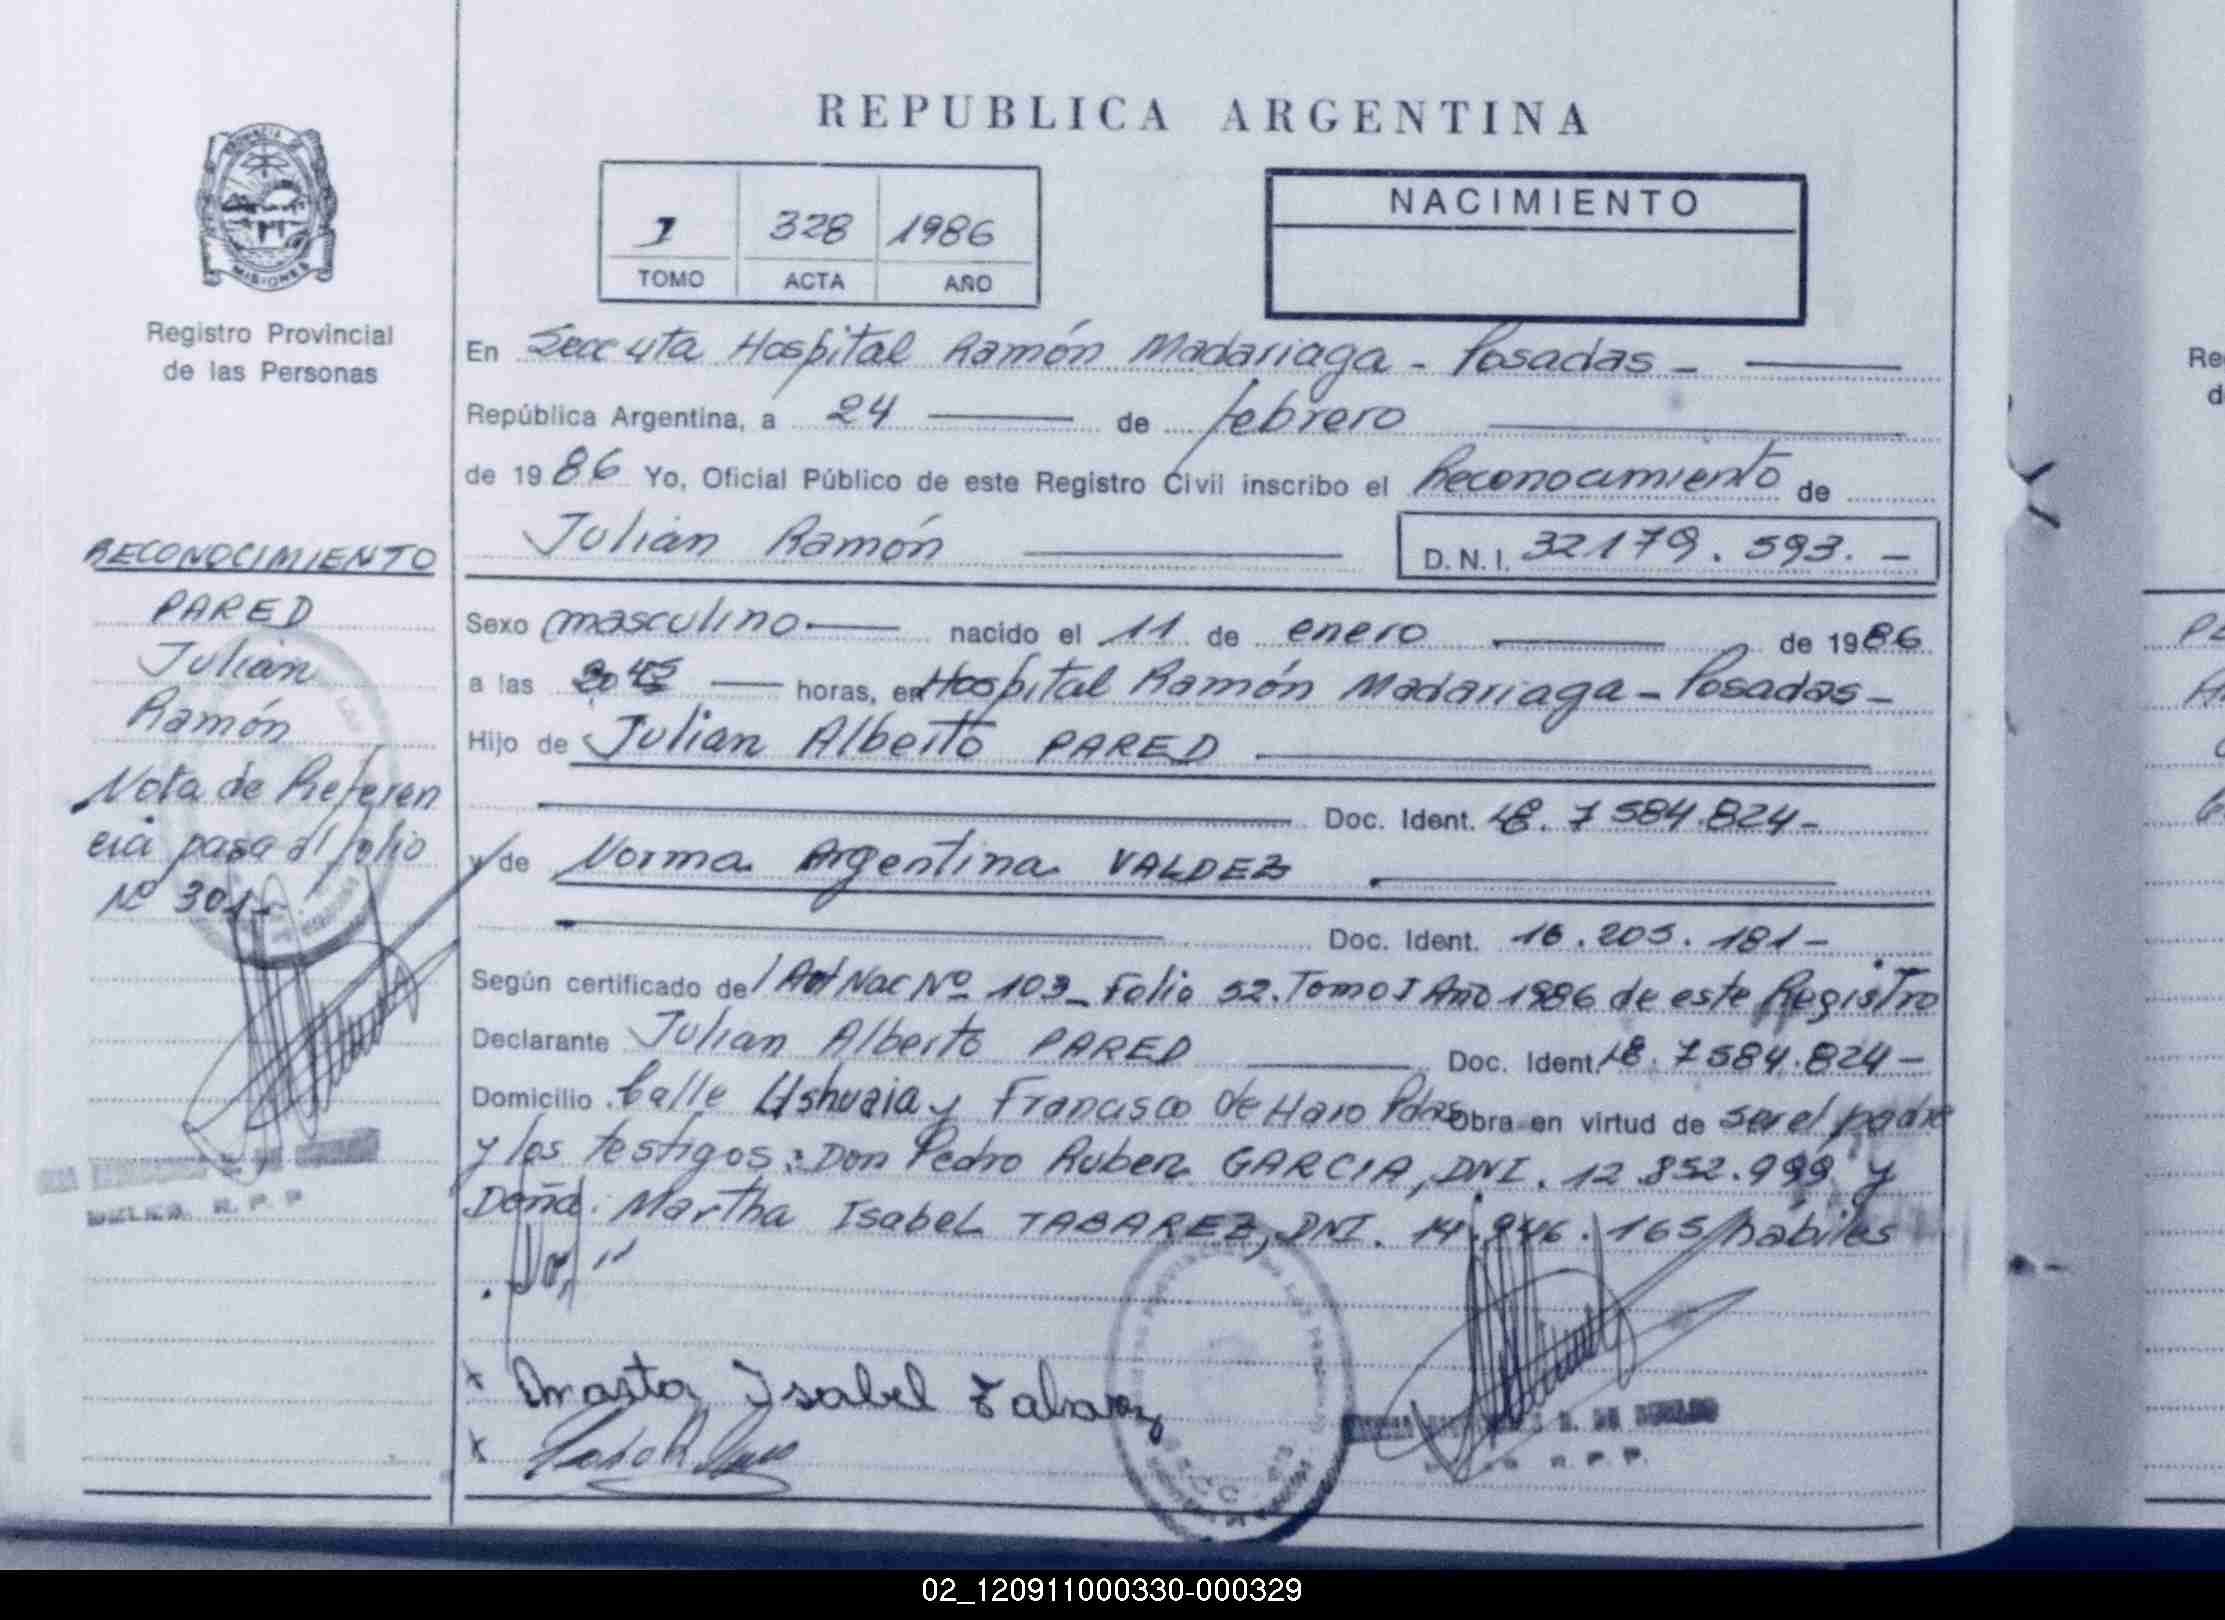 REPUBLICA ARGENTINA
PROVINCIA
MISIONES
Registro Provincial
de las Personas
1 328 1986
TOMO ACTA AÑO
NACIMIENTO
En Secc 4ta Hospital Ramón Madariaga - Posadas -
República Argentina, a 24 de febrero
de 1986 Yo, Oficial Público de este Registro Civil inscribo el Reconocimiento de
Julian Ramón
D.N.I. 32179.593.-
Sexo masculino nacido el 11 de enero de 1986
a las horas, en Hospital Ramón Madariaga - Posadas -
Hijo de Julian Alberto PARED
Doc. Ident. 7584.824-
y de Norma Argentina VALDEZ
Doc. Ident. 16.205.181-
Según certificado del Act Nac Nº 103_ Folio 52. Tomo I Año 1986 de este Registro
Declarante Julian Alberto PARED Doc. Ident. 7584.824-
Domicilio Calle Ushuaia y Francisco de Haro Pdas Obra en virtud de ser el padre
y los testigos: Don Pedro Ruben GARCIA, DNI. 12.852.999 y
Doña: Martha Isabel TABAREZ, DNI. 14.946.165/hábiles
RECONOCIMIENTO
PARED
Julian
Ramón
Nota de Referen
cia pasa al folio
Nº 301-
R. P. P.
x Marta Isabel Tabarez
x
R. P. P.
02_120911000330-000329